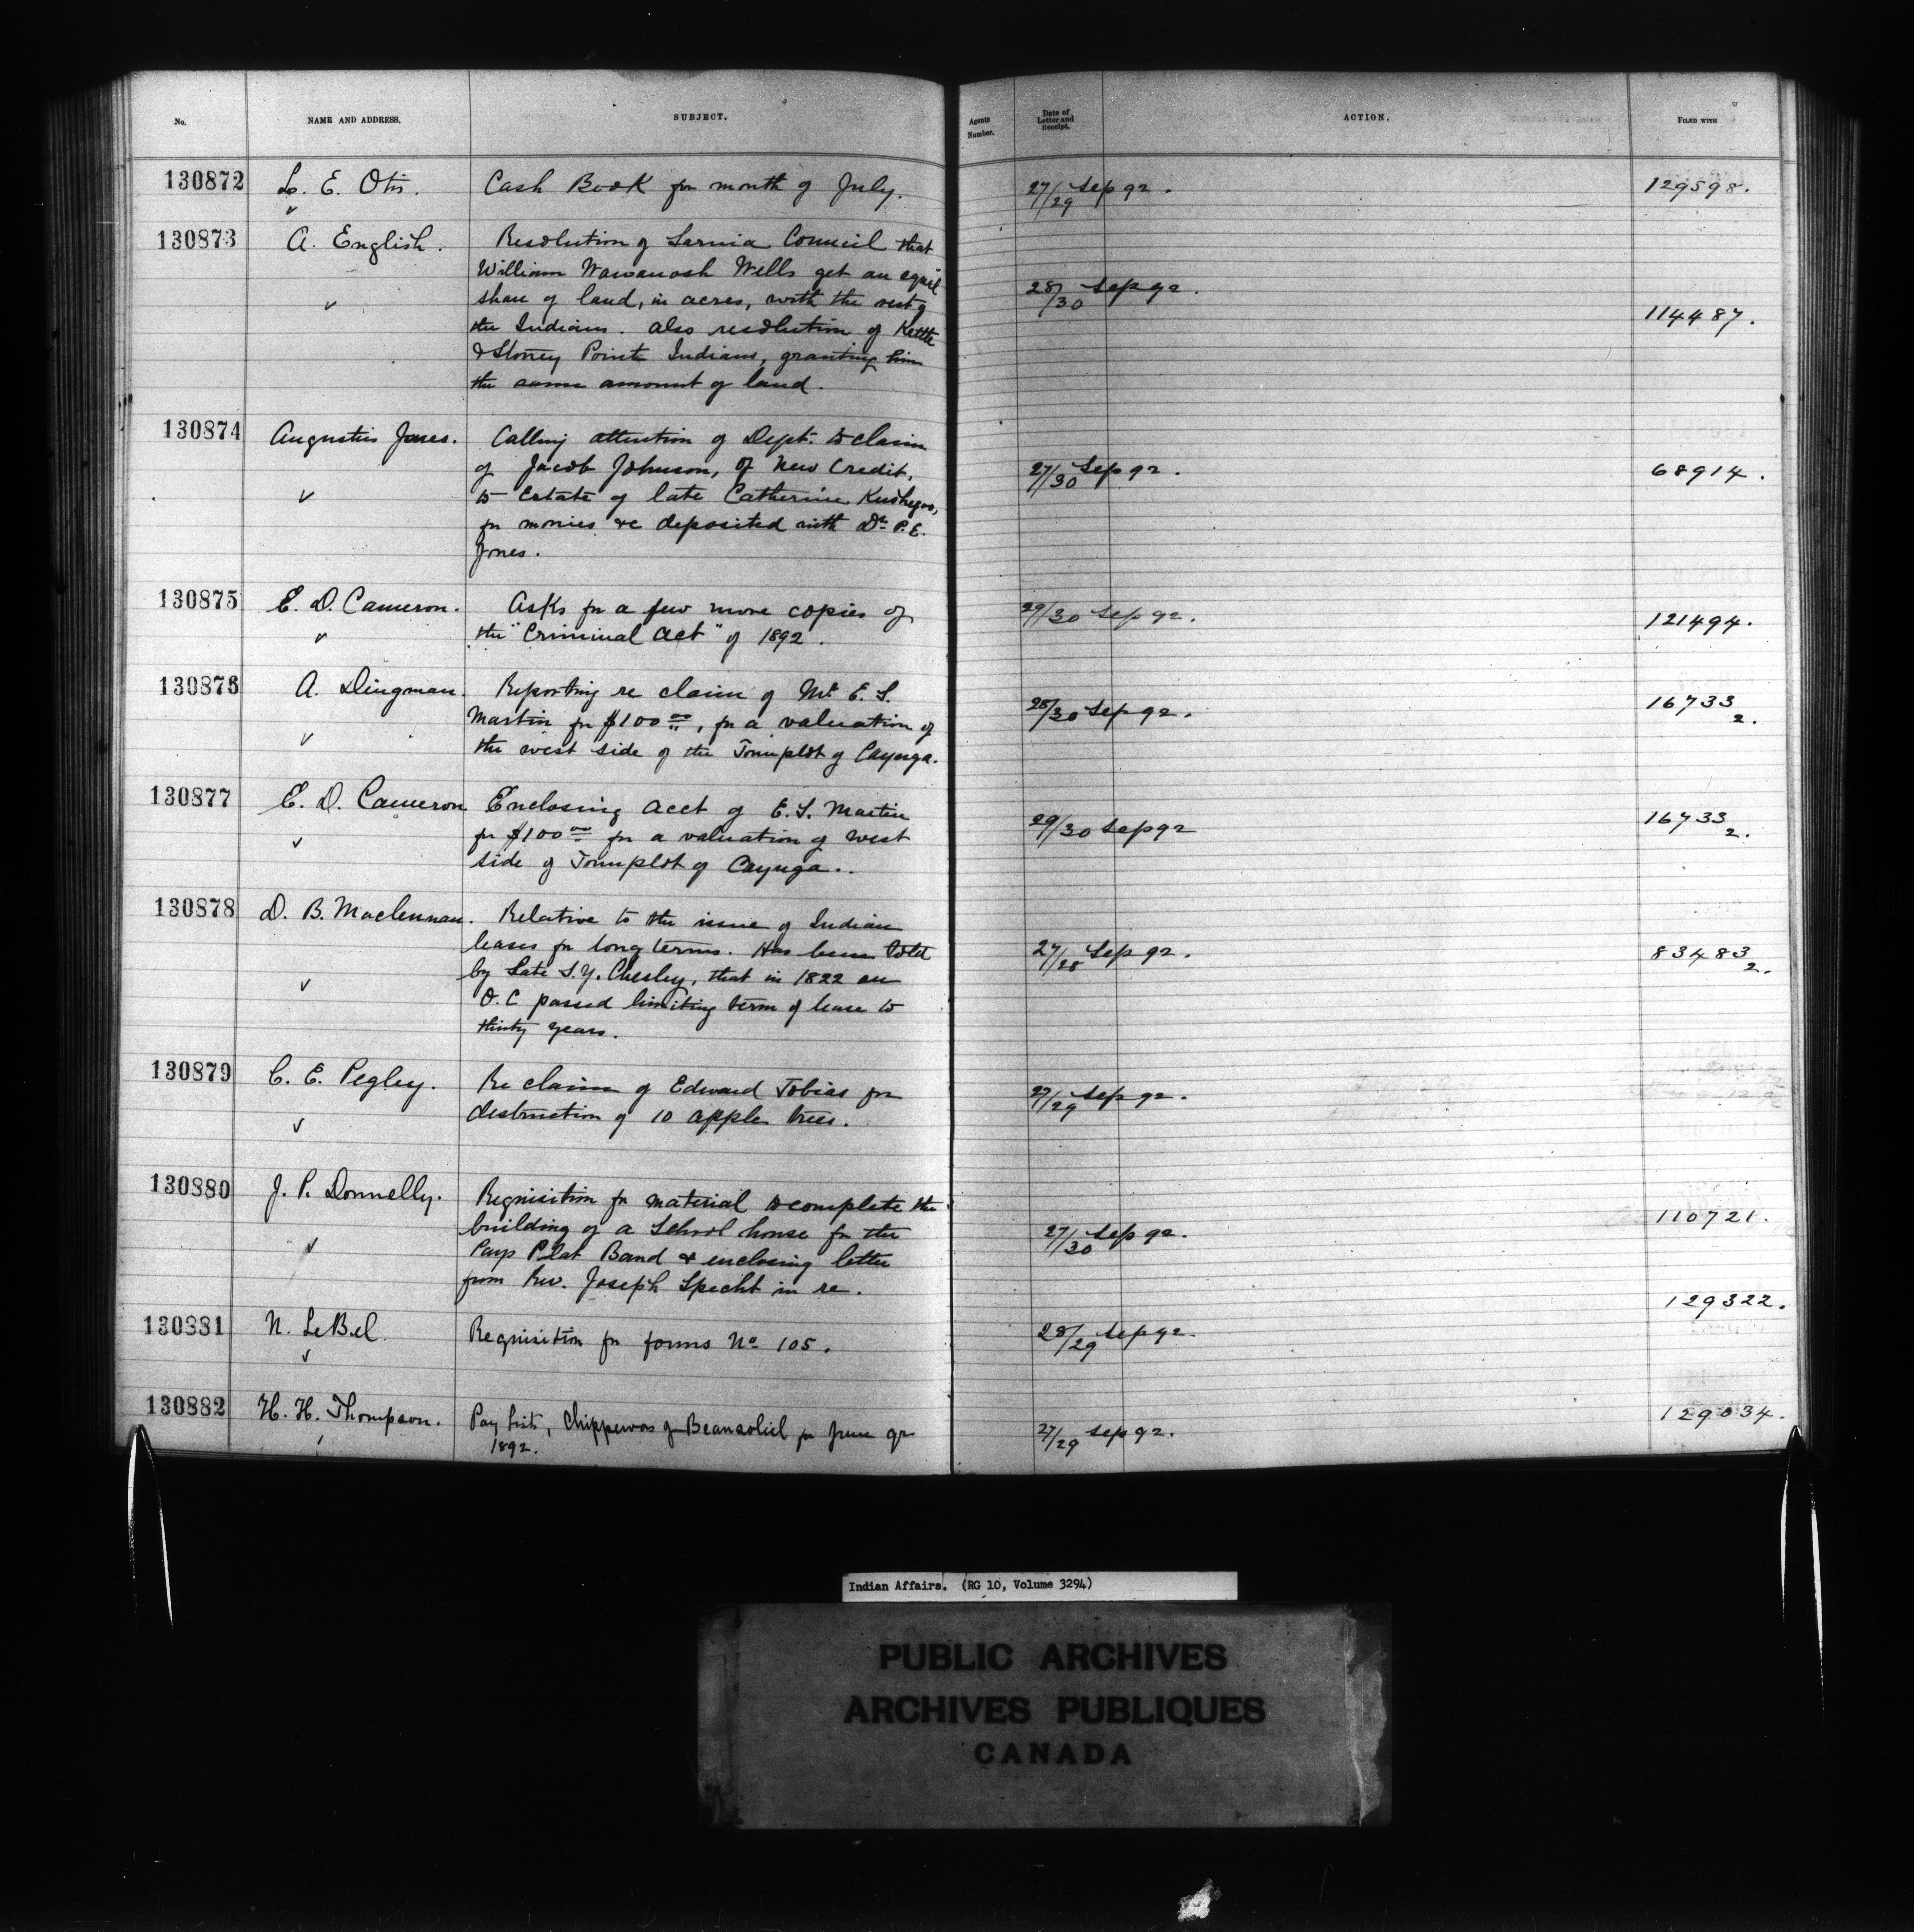 No. NAME AND ADDRESS. SUBJECT. Agents Number. Date of Letter and Receipt. ACTION. FILED WITH
130872 L. E. Otis. Cash Book for month of July. 27/29 Sep 92. 129598.
130873 A. English. Resolution of Sarnia Council that
William Wawanosh Wells get an equal
share of land, in acres, with the rest of 28/30 Sep 92.
the Indians. Also resolution of Kettle 114487.
& Stoney Point Indians, granting him
the same amount of land.
130874 Augustus Jones. Calling attention of Dept. to claim
of Jacob Johnson, of New Credit, 27/30 Sep 92. 68914.
to Estate of late Catherine Keshegoo,
for monies &c deposited with Dr. P. E.
Jones.
130875 E. D. Cameron. Asks for a few more copies of 29/30 Sep 92.
the "Criminal Act" of 1892. 121494.
130876 A. Dingman. Reporting re claim of Mr. E. S.
Martin for $100 00, for a valuation of 28/30 Sep 92. 16733 2.
the west side of the Townplot of Cayuga.
130877 E. D. Cameron Enclosing acct of E. S. Martin
for $100 00 for a valuation of west 29/30 Sep 92 16733 2.
side of Townplot of Cayuga..
130878 D. B. Maclennan. Relative to the issue of Indian
leases for long terms. Has been told 27/28 Sep 92. 83483 2.
by Late S. Y. Chesley, that in 1822 an
O. C passed limiting term of lease to
thirty years.
130879 C. E. Pegley. Re claim of Edward Tobias for
destruction of 10 apple trees. 27/29 Sep 92.
130880 J. P. Donnelly. Requisition for material to complete the
building of a School house for the 27/30 Sep 92. 110721.
Pays Plat Band & enclosing letter
from Rev. Joseph Specht in re.
130881 N. LeBel. Requisition for forms No 105. 28/29 Sep 92. 129322.
130882 H. H. Thompson. Pay lists, Chippewas of Beausoliel for June qr 27/29 Sep 92. 129034.
1892.
Indian Affairs. (RG 10, Volume 3294)
PUBLIC ARCHIVES
ARCHIVES PUBLIQUES
CANADA